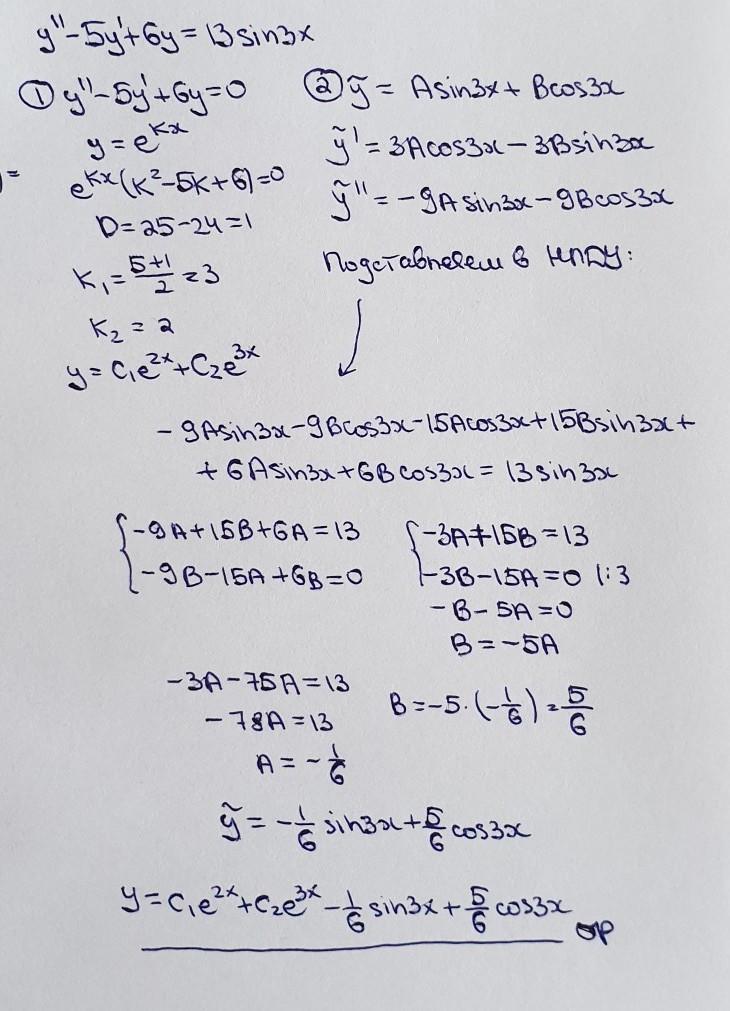 y'' - 5y' + 6y = 13sin3x
① y'' - 5y' + 6y = 0
y = e^{kx}
e^{kx}(k² - 5k + 6) = 0
D = 25 - 24 = 1
k₁ = \frac{5+1}{2} = 3
k₂ = 2
y = C₁e^{2x} + C₂e^{3x}
② ỹ = Asin3x + Bcos3x
ỹ' = 3Acos3x - 3Bsin3x
ỹ'' = -9Asin3x - 9Bcos3x
Подставляем в НЛДУ:
- 9Asin3x - 9Bcos3x - 15Acos3x + 15Bsin3x +
+ 6Asin3x + 6Bcos3x = 13sin3x
{ -9A + 15B + 6A = 13
-9B - 15A + 6B = 0
{ -3A + 15B = 13
-3B - 15A = 0 |:3
-B - 5A = 0
B = -5A
-3A - 75A = 13
-78A = 13
A = -\frac{1}{6}
B = -5·(-\frac{1}{6}) = \frac{5}{6}
ỹ = -\frac{1}{6}sin3x + \frac{5}{6}cos3x
y = C₁e^{2x} + C₂e^{3x} - \frac{1}{6}sin3x + \frac{5}{6}cos3x
ОР